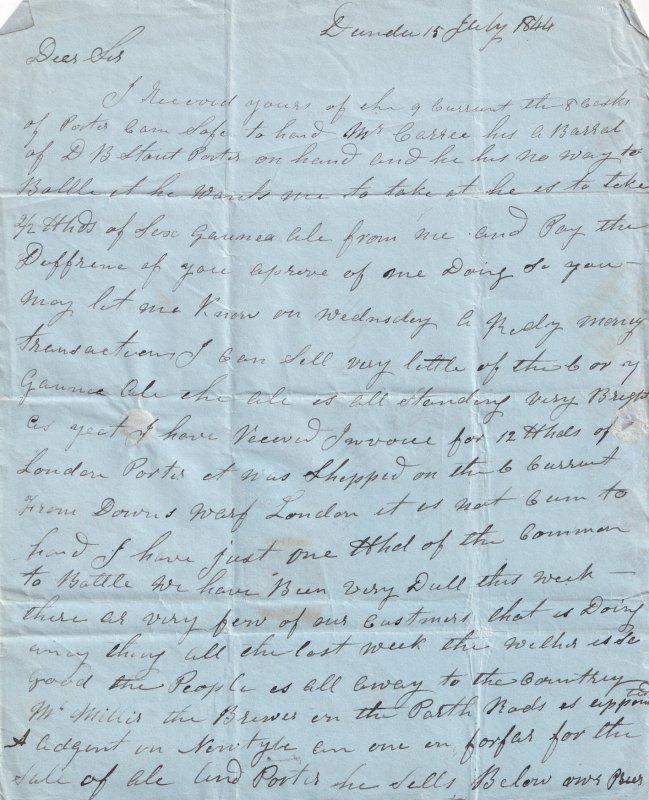 Dundee 15 July 1844
Deer Sir
I Receved yours of the 9 Current the 8 Casks
of Porter Cam Safe to hand Mr Carree has a Barral
of D B Stout Porter on hand and he has no way to
Bottle it he wants me to take at he es to take
2/2 Hhds of Sex Gaunea Ale from me and Pay the
Deffrene if you aprove of me Doing So you
may let me Know on Wednsday a Redy money
transaction I Can Sell very little of the 6 or 7
Gaunea Ale the ale is all Standing very Bright
as yeat I have Receved Invoice for 12 Hhds of
London Porter it was Shepped on the 6 Current
From Downs Warf London it is not Cum to
hand I have just one Hhd of the Common
to Bottle We have Been very Dull this week
there ar very few of our Custmers that is Doing
any thing all the last week the wether is So
good the People is all away to the Country
Mr Millis the Brewer on the Parth Rods is appointed
A Adgent in Newtyle an one in forfar for the
Sale of ale and Porter he Sells Below owr Prices